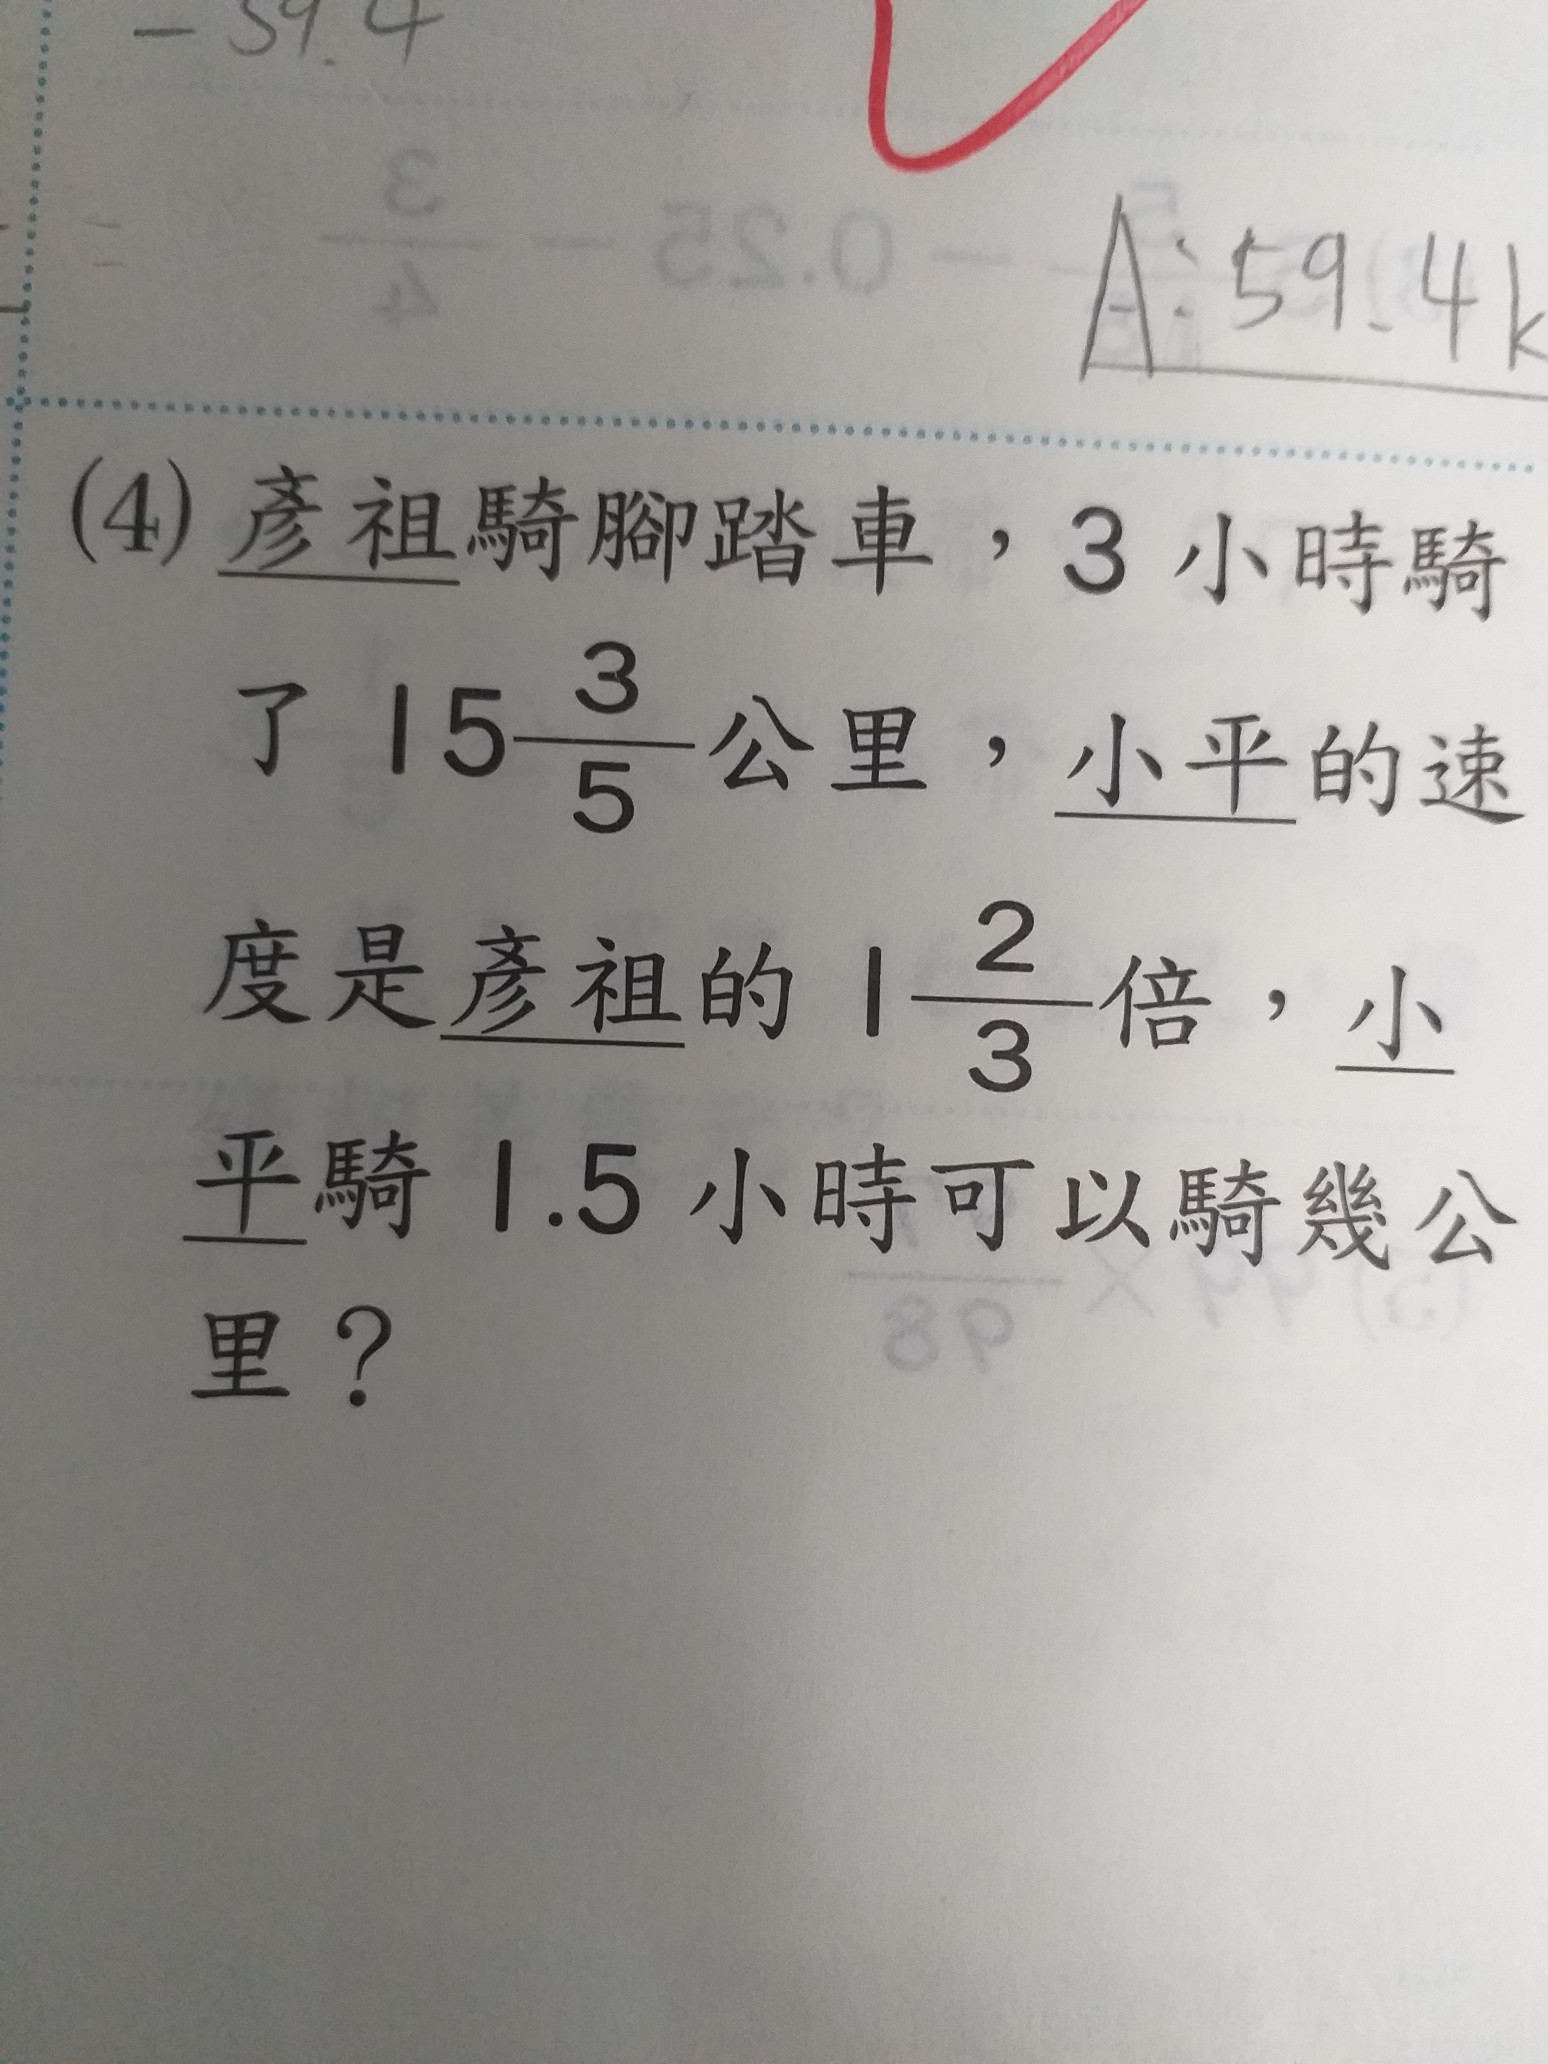 - 59.4
A: 59.4k
(4) 彥祖騎腳踏車，3 小時騎
了 15 3/5 公里，小平的速
度是彥祖的 1 2/3 倍，小
平騎 1.5 小時可以騎幾公
里？